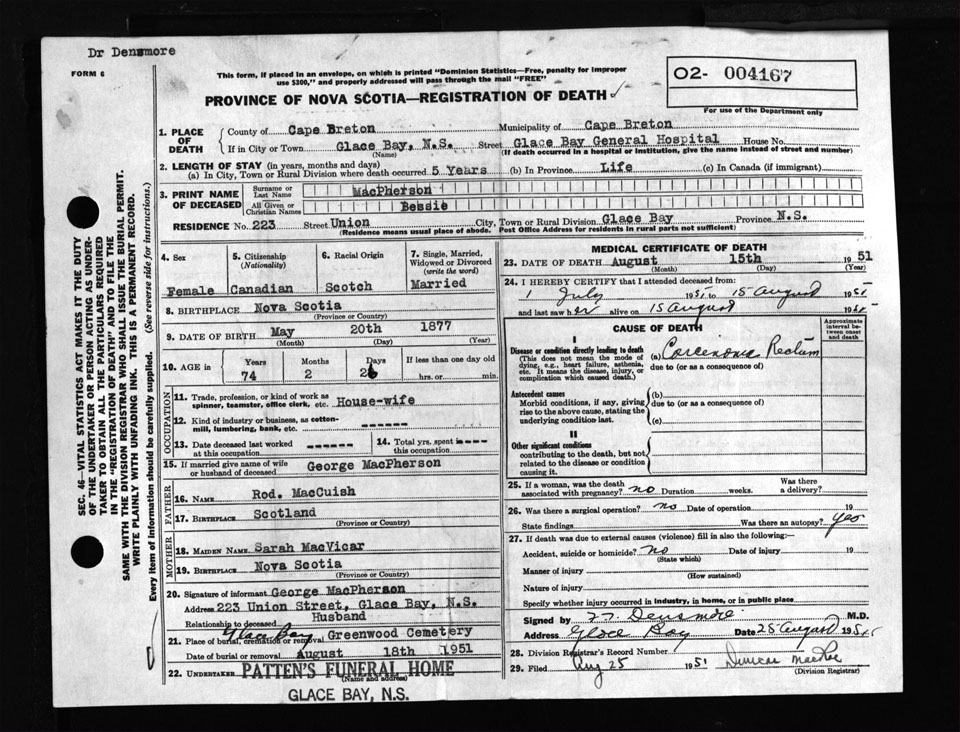 Dr Densmore
FORM 6
This form, if placed in an envelope, on which is printed "Dominion Statistics—Free, penalty for improper
use $300," and properly addressed will pass through the mail "FREE"
PROVINCE OF NOVA SCOTIA—REGISTRATION OF DEATH
02- 004167
For use of the Department only
1. PLACE OF DEATH
County of Cape Breton Municipality of Cape Breton
If in City or Town Glace Bay, N.S. Street Glace Bay General Hospital House No.
(Name) (If death occurred in a hospital or institution, give the name instead of street and number)
2. LENGTH OF STAY (in years, months and days)
(a) In City, Town or Rural Division where death occurred 5 Years (b) In Province Life (c) In Canada (if immigrant)
3. PRINT NAME OF DECEASED
Surname or Last Name MacPherson
All Given or Christian Names Bessie
RESIDENCE No. 223 Street Union City, Town or Rural Division Glace Bay Province N.S.
(Residence means usual place of abode. Post Office Address for residents in rural parts not sufficient)
4. Sex
Female
5. Citizenship (Nationality)
Canadian
6. Racial Origin
Scotch
7. Single, Married, Widowed or Divorced (write the word)
Married
8. BIRTHPLACE Nova Scotia
(Province or Country)
9. DATE OF BIRTH May 20th 1877
(Month) (Day) (Year)
10. AGE in
Years Months Days If less than one day old
74 2 26 hrs. or min.
OCCUPATION
11. Trade, profession, or kind of work as
spinner, teamster, office clerk, etc. House-wife
12. Kind of industry or business, as cotton-
mill, lumbering, bank, etc. ------
13. Date deceased last worked
at this occupation ------
14. Total yrs. spent in
this occupation ----
15. If married give name of wife
or husband of deceased George MacPherson
FATHER
16. NAME Rod. MacCuish
17. BIRTHPLACE Scotland
(Province or Country)
MOTHER
18. MAIDEN NAME Sarah MacVicar
19. BIRTHPLACE Nova Scotia
(Province or Country)
20. Signature of informant George MacPherson
Address 223 Union Street, Glace Bay, N.S.
Relationship to deceased Husband
21. Place of burial, cremation or removal Glace Bay Greenwood Cemetery
Date of burial or removal August 18th 1951
22. UNDERTAKER PATTEN'S FUNERAL HOME
(Name and address)
GLACE BAY, N.S.
MEDICAL CERTIFICATE OF DEATH
23. DATE OF DEATH August 15th 1951
(Month) (Day) (Year)
24. I HEREBY CERTIFY that I attended deceased from:
1 July 1951 to 15 August 1951
and last saw her alive on 15 August 1951
CAUSE OF DEATH
Approximate interval between onset and death
I
Disease or condition directly leading to death
(This does not mean the mode of
dying, e.g., heart failure, asthenia,
etc. It means the disease, injury, or
complication which caused death.)
(a) Carcenoma Rectum
due to (or as a consequence of)
Antecedent causes
Morbid conditions, if any, giving
rise to the above cause, stating the
underlying condition last.
(b)
due to (or as a consequence of)
(c)
II
Other significant conditions
contributing to the death, but not
related to the disease or condition
causing it.
25. If a woman, was the death
associated with pregnancy? no Duration weeks. Was there
a delivery?
26. Was there a surgical operation? no Date of operation 19
State findings Was there an autopsy? yes
27. If death was due to external causes (violence) fill in also the following:—
Accident, suicide or homicide? no Date of injury 19
(State which)
Manner of injury
(How sustained)
Nature of injury
Specify whether injury occurred in industry, in home, or in public place
Signed by Densmore M.D.
Address Glace Bay Date 25 August 1951
28. Division Registrar's Record Number
29. Filed Aug 25 1951 Duncan MacRae
(Division Registrar)
SEC. 46—VITAL STATISTICS ACT MAKES IT THE DUTY
OF THE UNDERTAKER OR PERSON ACTING AS UNDER-
TAKER TO OBTAIN ALL THE PARTICULARS REQUIRED
IN THE "REGISTRATION OF DEATH" AND TO FILE THE
SAME WITH THE DIVISION REGISTRAR WHO SHALL ISSUE THE BURIAL PERMIT.
WRITE PLAINLY WITH UNFADING INK. THIS IS A PERMANENT RECORD.
Every item of information should be carefully supplied. (See reverse side for instructions.)